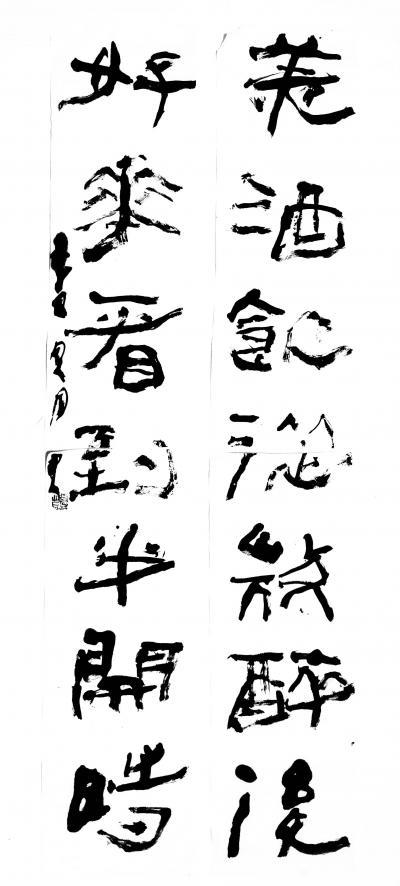 美酒飲從微醉後
好華看到半開時